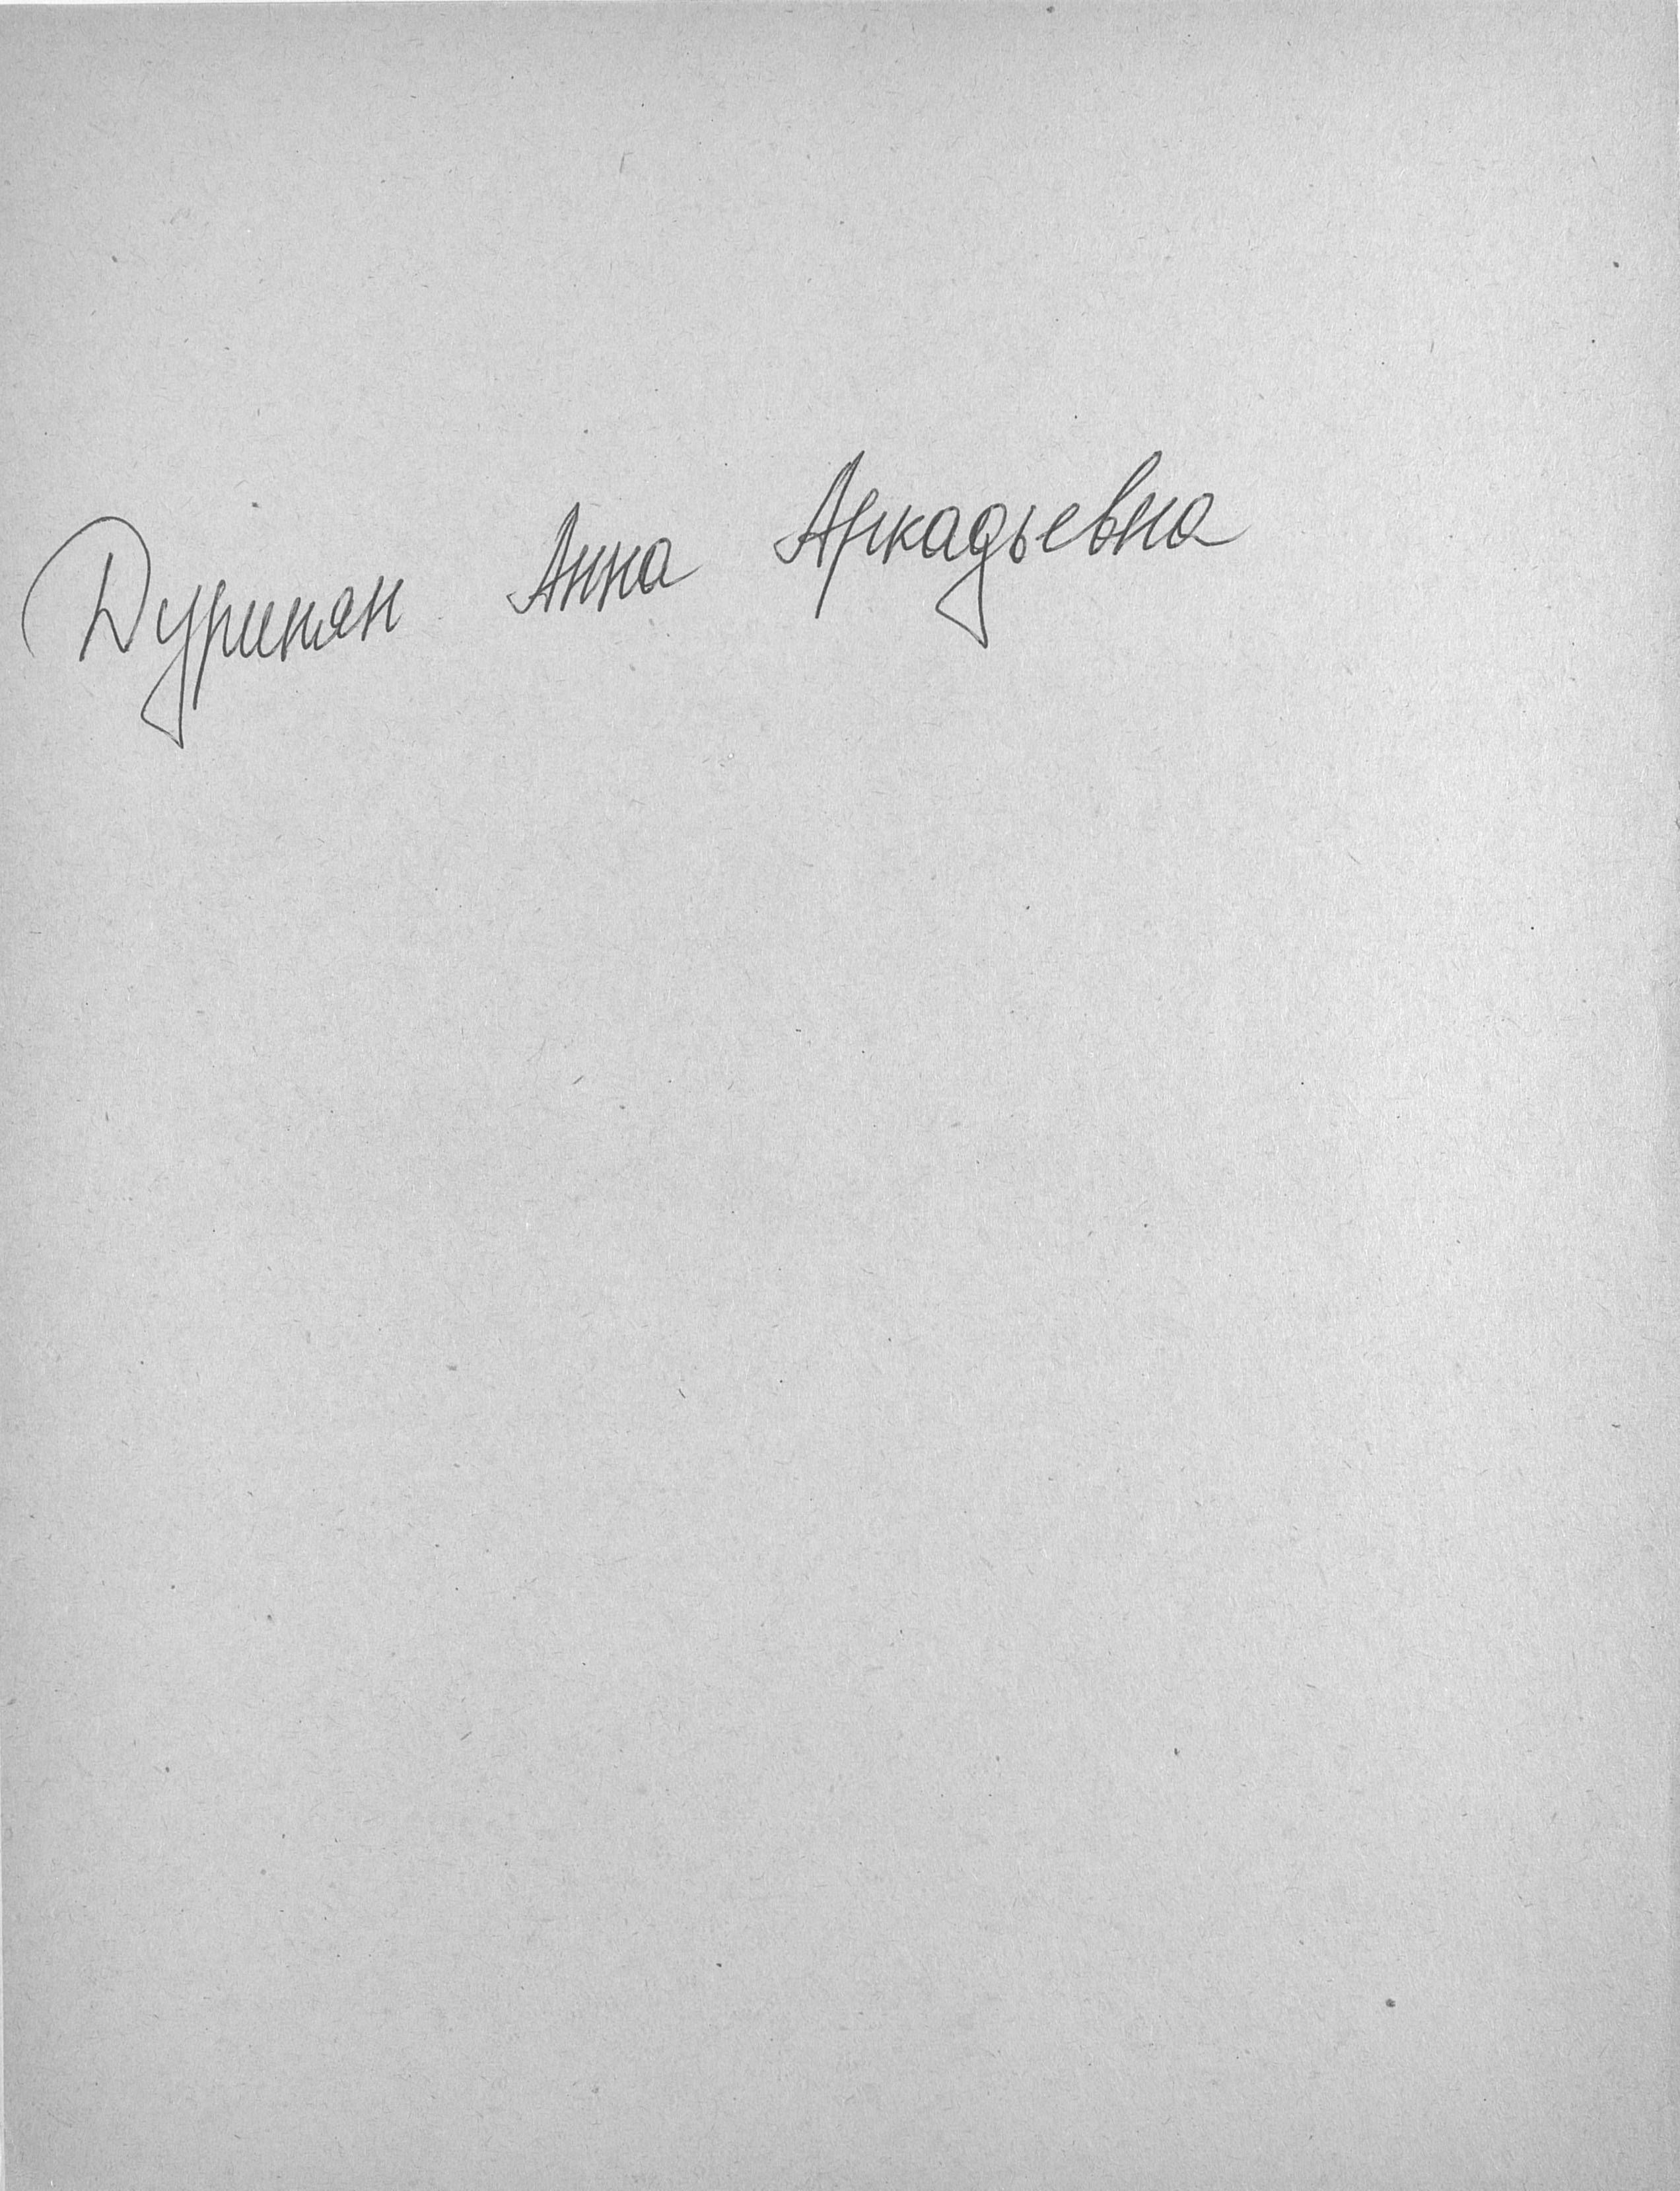 Дуринян Анна Аркадьевна